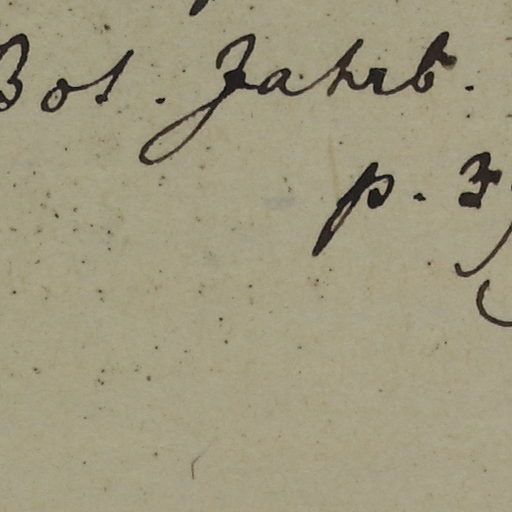 Bot. Jahrb.
p. 3